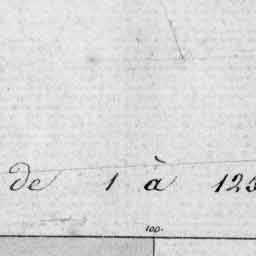 de 1 à 125
100.